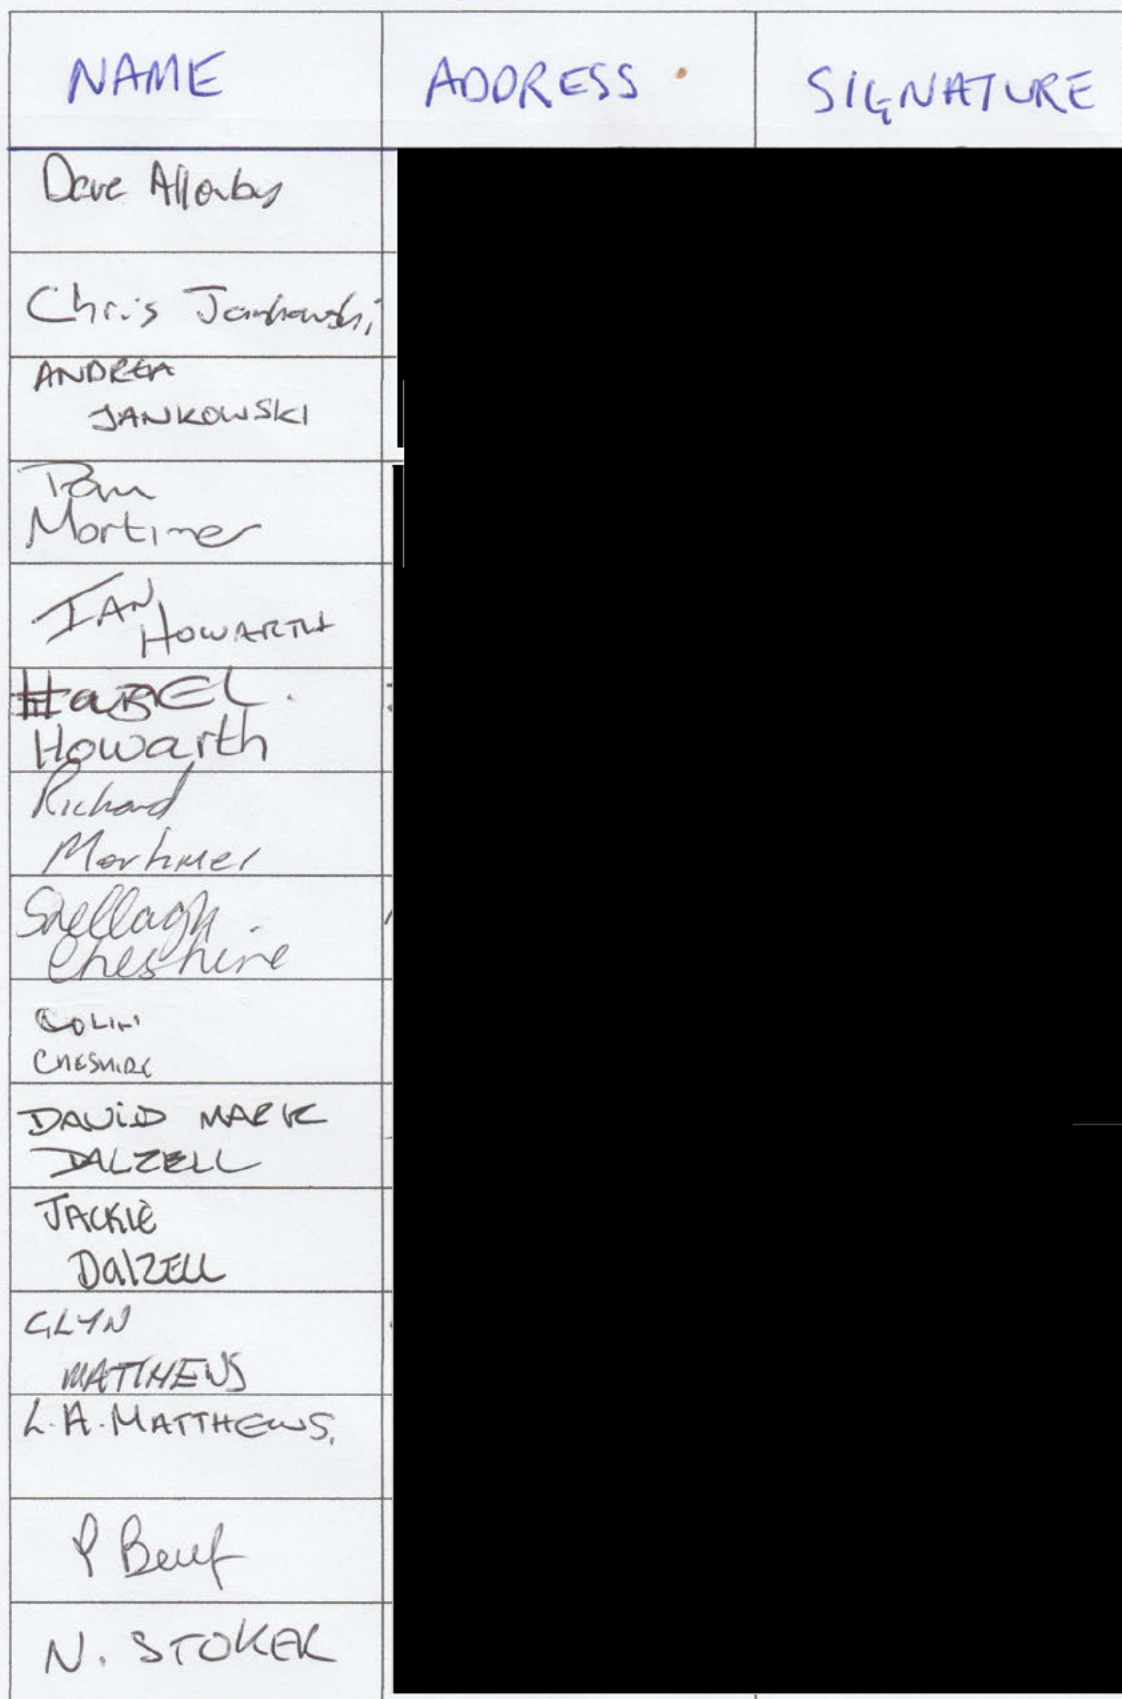 NAME ADDRESS SIGNATURE
Dave Allenby
Chris Jankowski
ANDREA
JANKOWSKI
Pam
Mortimer
IAN
HOWARTH
HAZEL.
Howarth
Richard
Mortimer
Shellagh
Cheshire
COLIN
CHESHIRE
DAVID MARK
DALZELL
JACKIE
DalZELL
GLYN
MATTHEWS
L.A. MATTHEWS.
P
N. STOKER